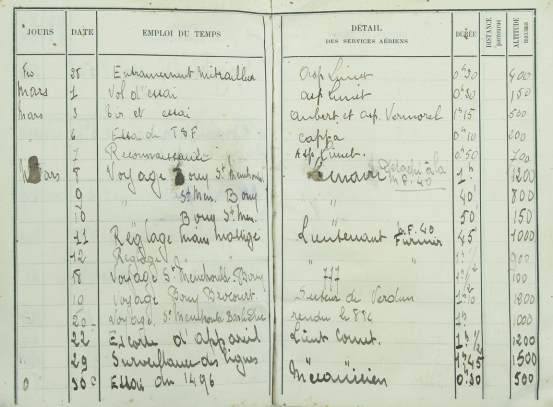 JOURS DATE EMPLOI DU TEMPS DÉTAIL DES SERVICES AÉRIENS DURÉE DISTANCE ALTITUDE
Fev 25 Entrainement Mitrailleur asp Limet 0h30 400
Mars 1 Vol d'essai asp Limet 0h30 150
Mars 3 Tir et essai Aubert et asp. Vermorel 1h15 500
6 Essai de TSF Cappa 0h10 200
7 Reconnaissance Asp Limet. 0h50 700
Mars 8 Voyage Bouy St Menehould 1h 1200
M.F. 40
9 " St Men. Bouy " 40' 800
10 " Bouy St Men. " 50 150
11 Réglage main Lieutenant M.F. 40 45 1000
12 Réglage " "
18 Voyage St Menehould. Bouy 100
10 Voyage Bouy Secteur de Verdun
20 Voyage. St Menehould rendu le 1h 1000
22 Escorte d'appareil Lieut Cornet. 1200
29 Surveillance des lignes " " 1h45 1500
30 Essai du 1496 Mécanicien 0h30 500